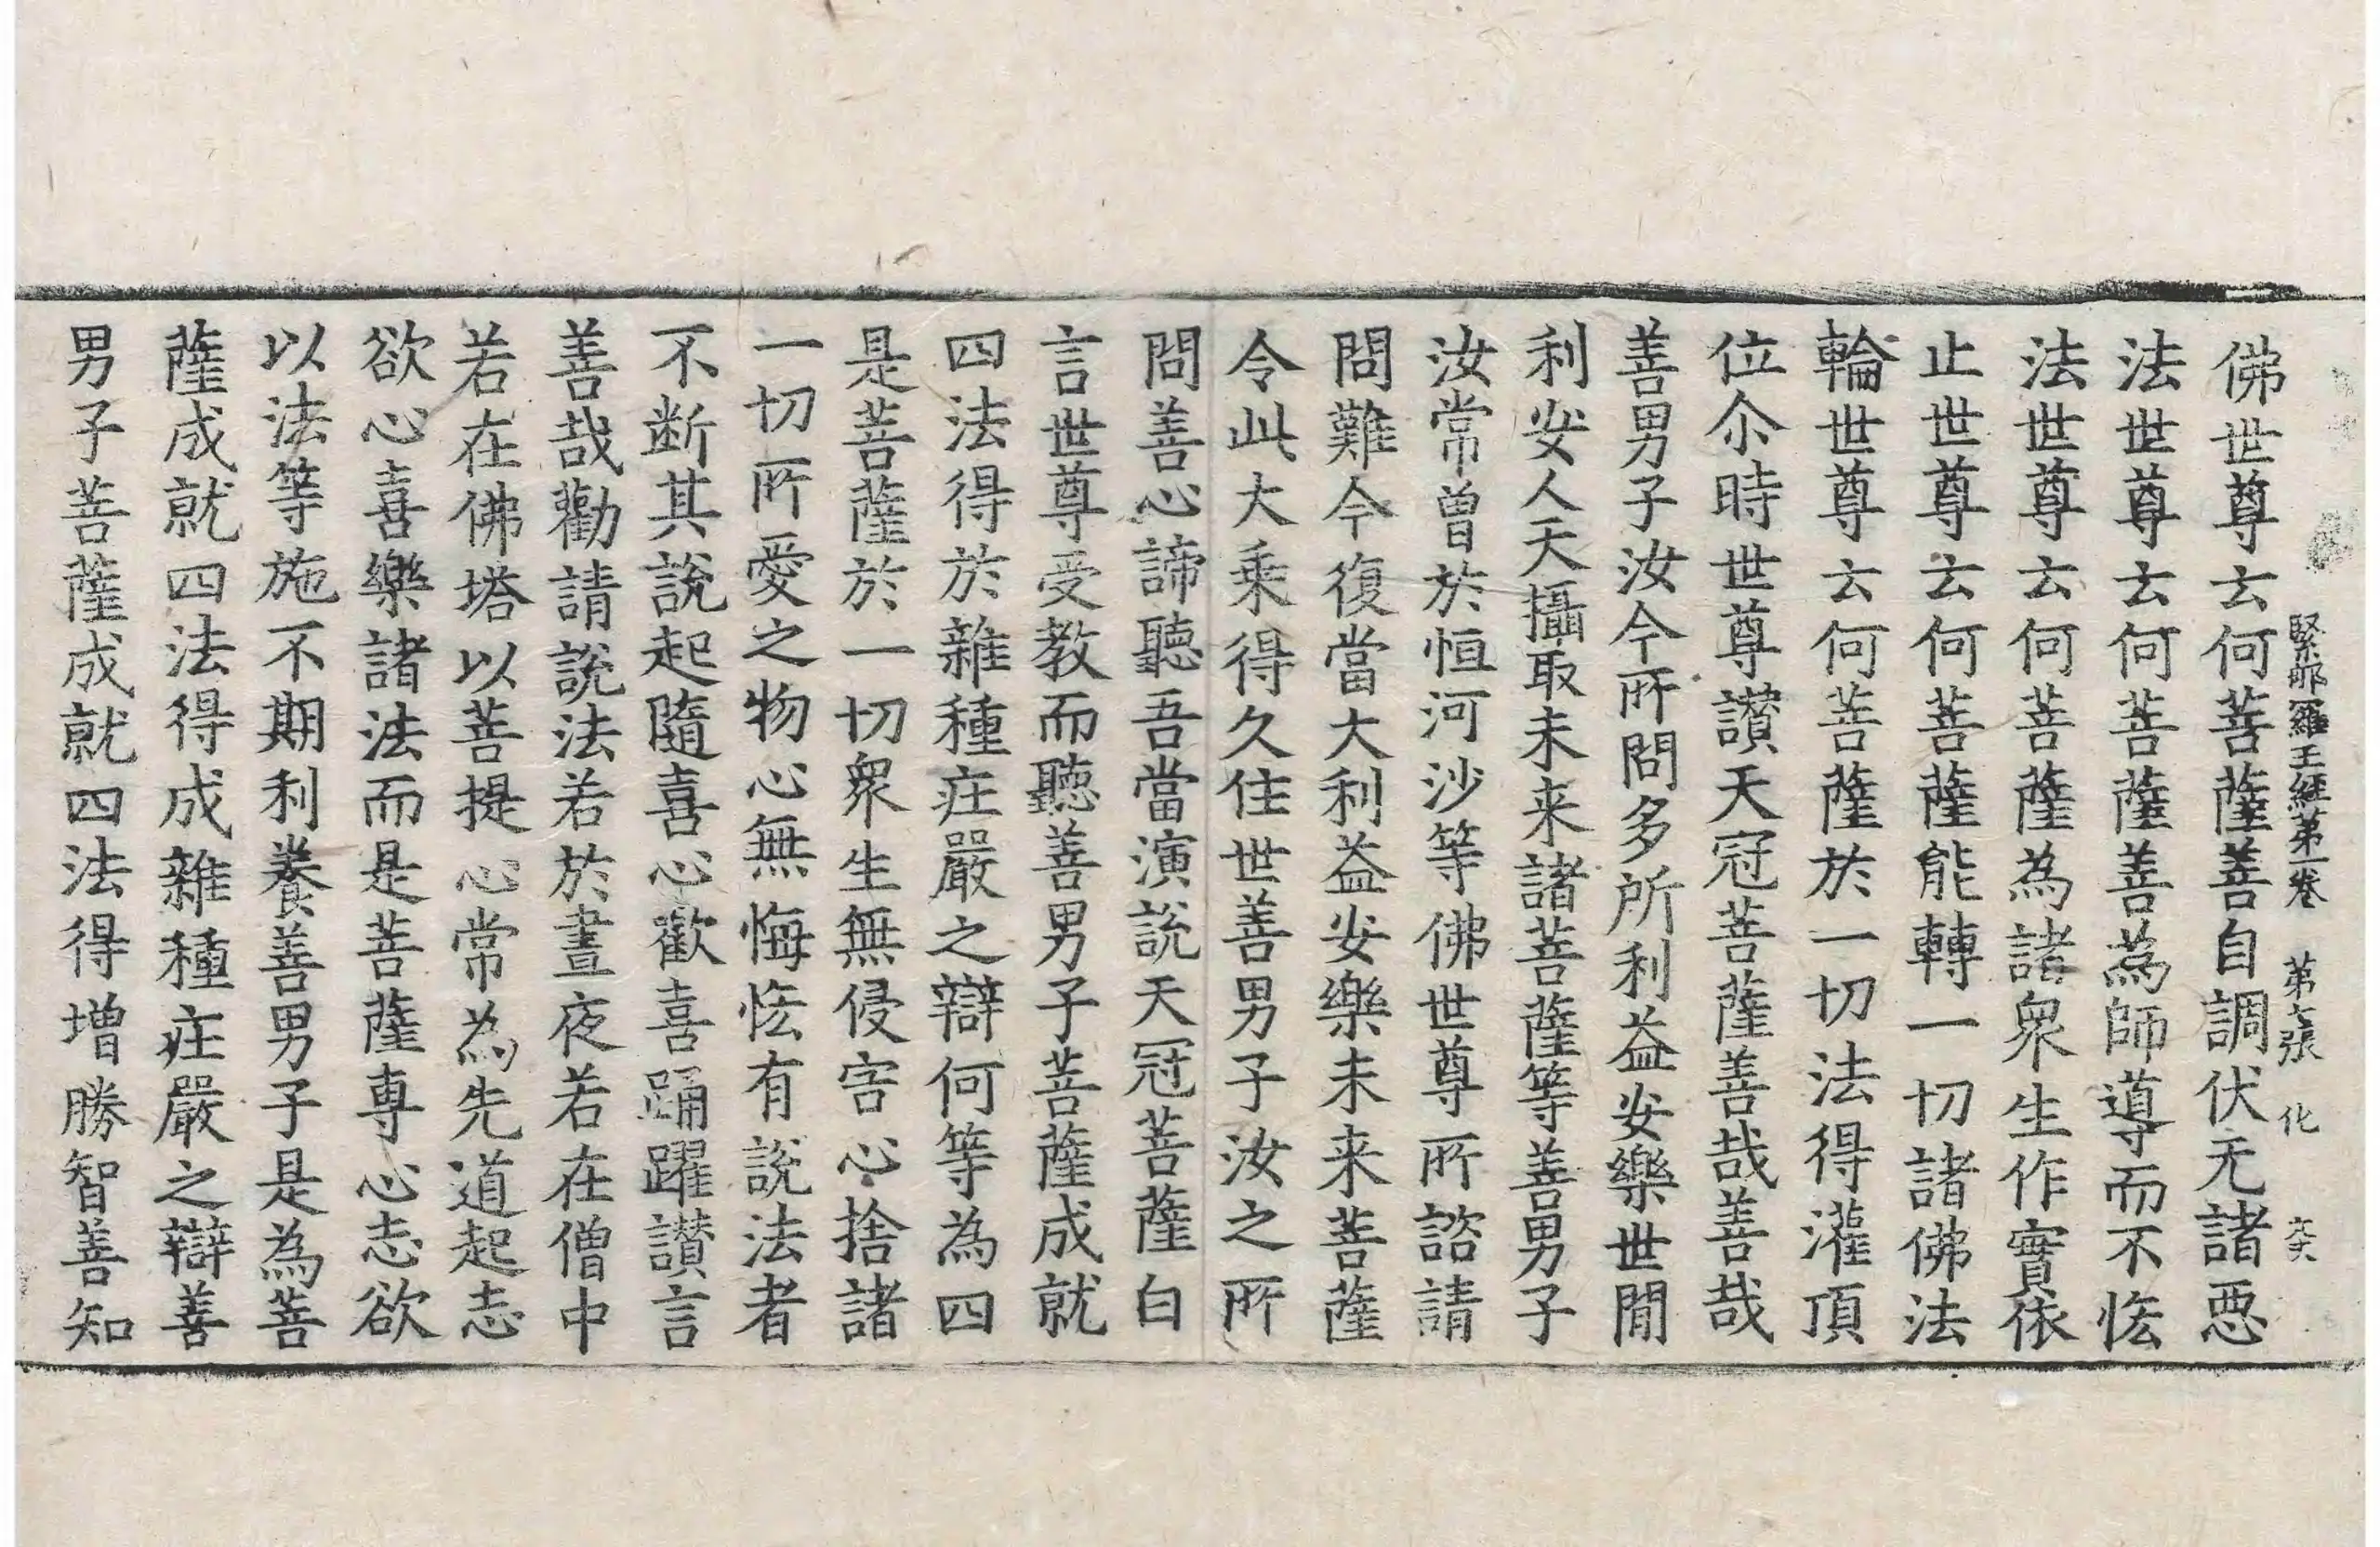 緊那羅王經第一卷 第六張 化
佛世尊云何菩薩善自調伏无諸惡
法世尊云何菩薩善為師導而不恡
法世尊云何菩薩為諸衆生作實依
止世尊云何菩薩能轉一切諸佛法
輪世尊云何菩薩於一切法得灌頂
位尒時世尊讃天冠菩薩善哉善哉
善男子汝今所問多所利益安樂世間
利安人天攝取未来諸菩薩等善男子
汝常曾於恒河沙等佛世尊所諮請
問難今復當大利益安樂未来菩薩
令此大乘得久住世善男子汝之所
問善心諦聽吾當演說天冠菩薩白
言世尊受教而聽善男子菩薩成就
四法得於雜種疘嚴之辯何等為四
是菩薩於一切衆生無侵害心捨諸
一切所愛之物心無悔恡有說法者
不断其說起隨喜心歡喜踊躍讃言
善哉勸請說法若於晝夜若在僧中
若在佛塔以菩提心常為先道起志
欲心喜樂諸法而是菩薩專心志欲
以法等施不期利養善男子是為菩
薩成就四法得成雜種疘嚴之辯善
男子菩薩成就四法得增勝智善知